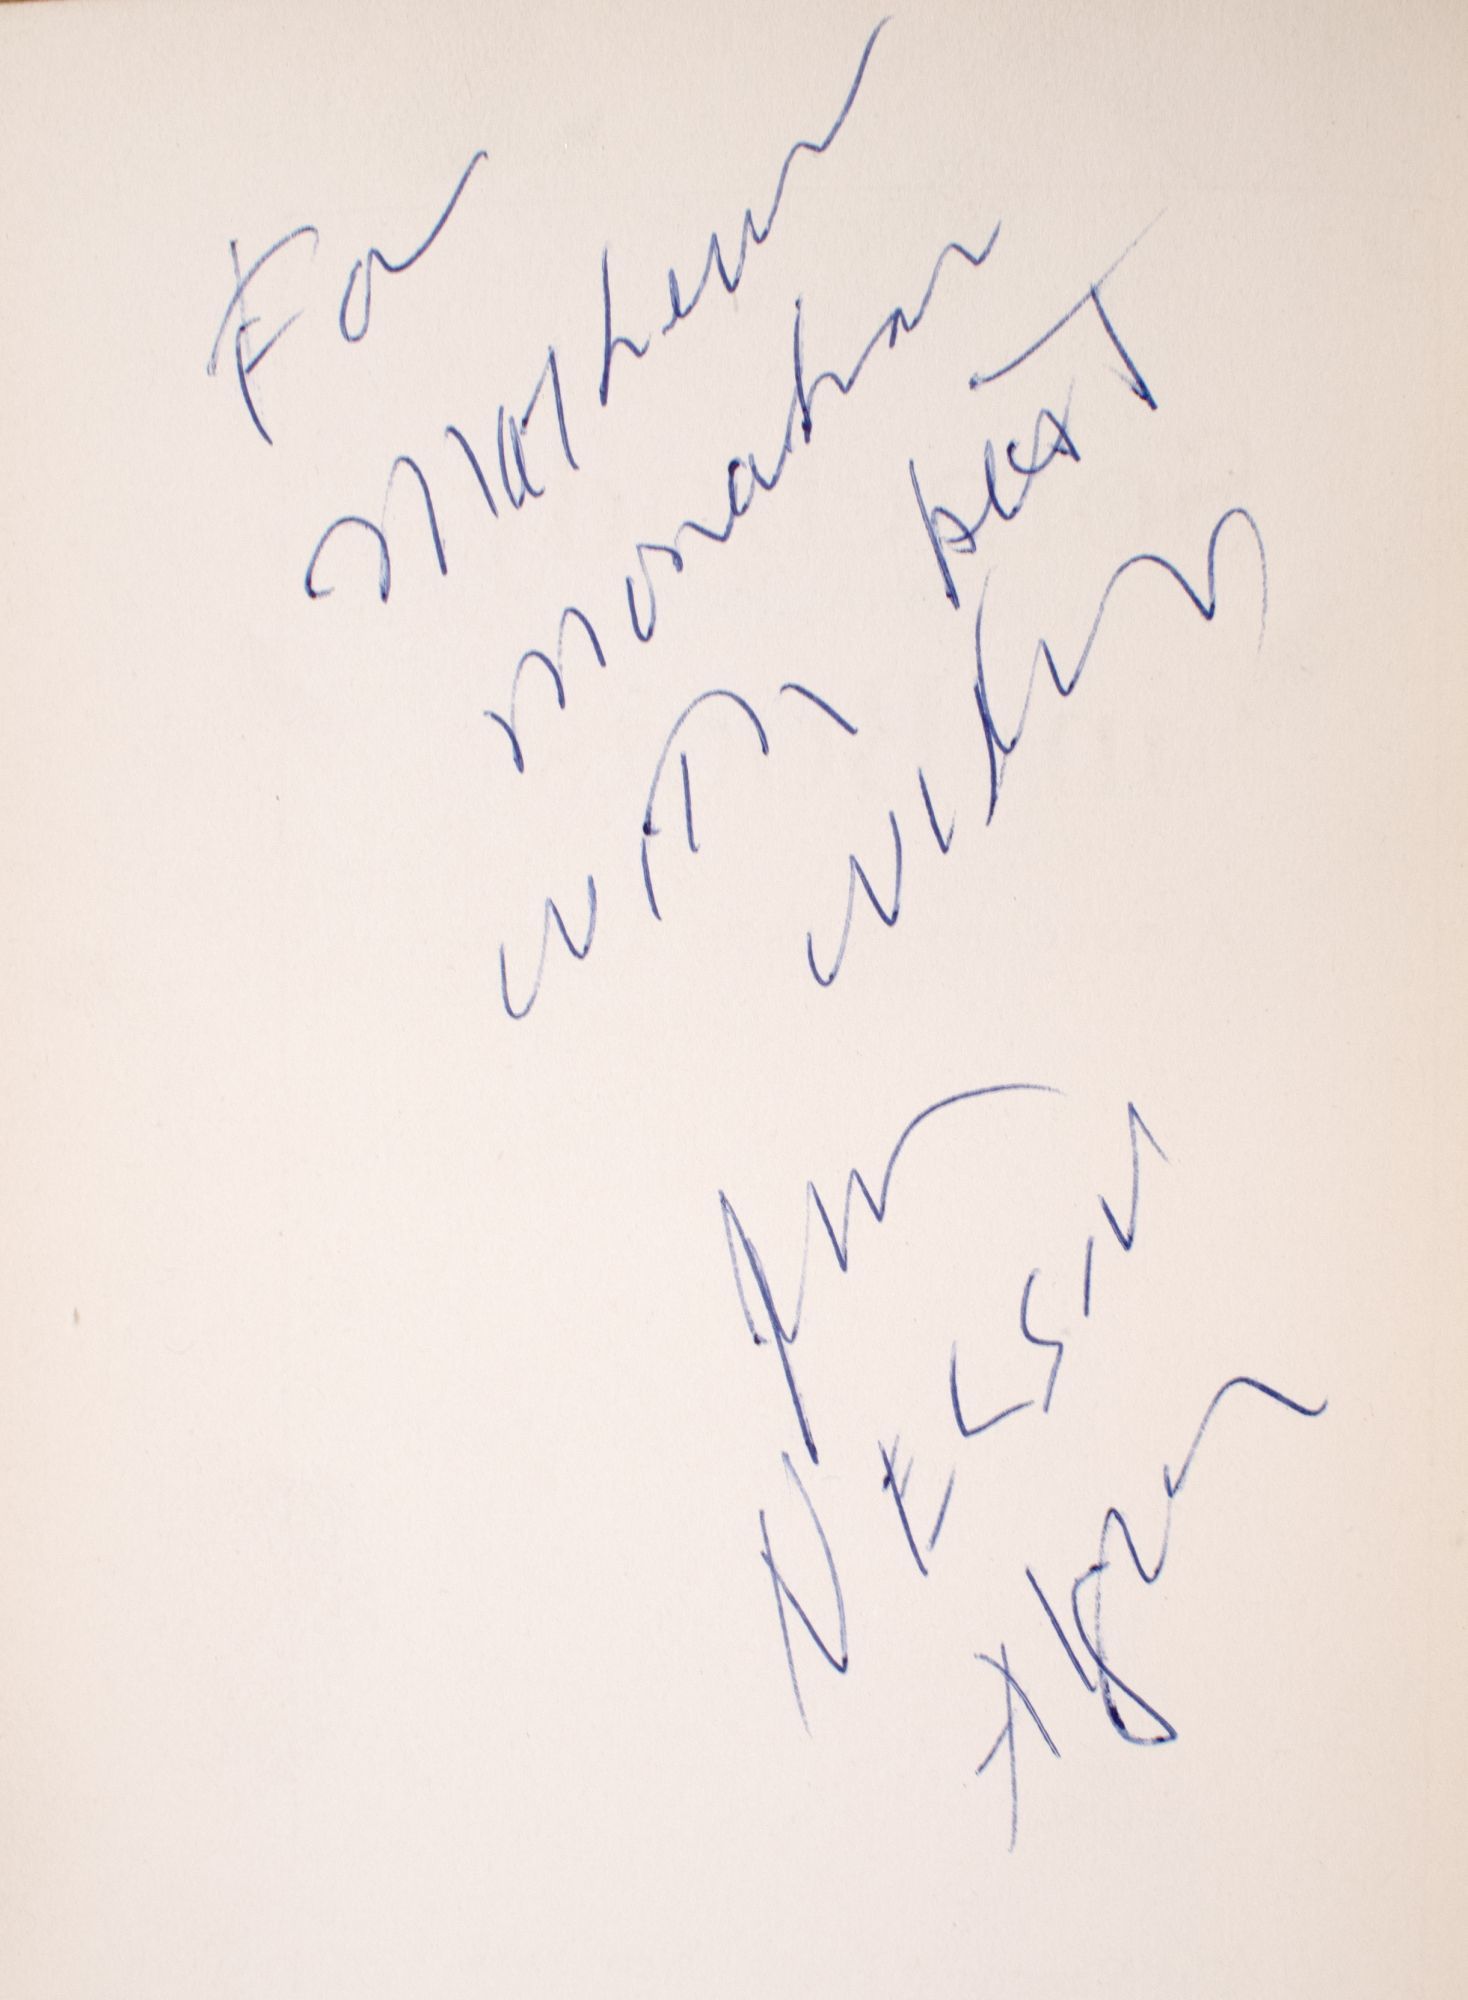 For
Matthew
Monahan
with best
wishes
Nelson
Algren